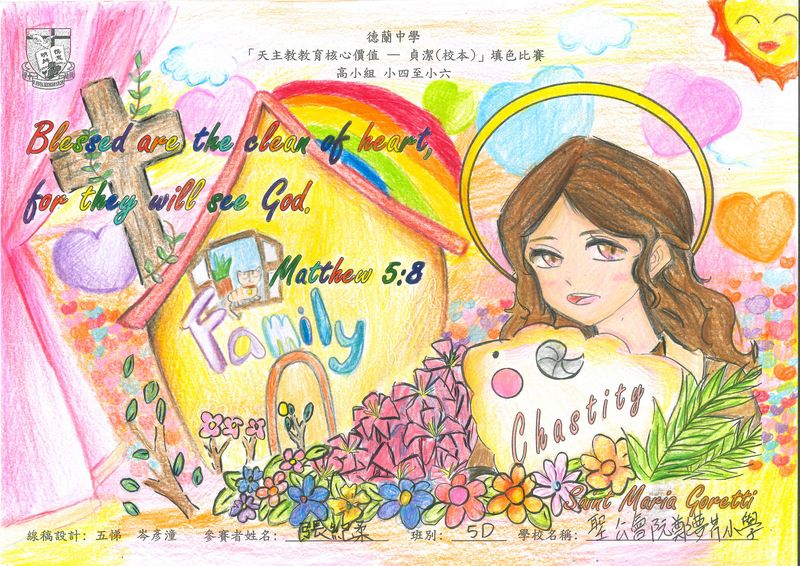 德蘭中學
「天主教教育核心價值 — 貞潔(校本)」填色比賽
高小組 小四至小六
Blessed are the clean of heart,
for they will see God.
Matthew 5:8
Family
Chastity
Saint Maria Goretti
線稿設計: 五悌 岑彥潼 參賽者姓名: 張 柔 班別: 5D 學校名稱: 聖公會阮鄭 小學